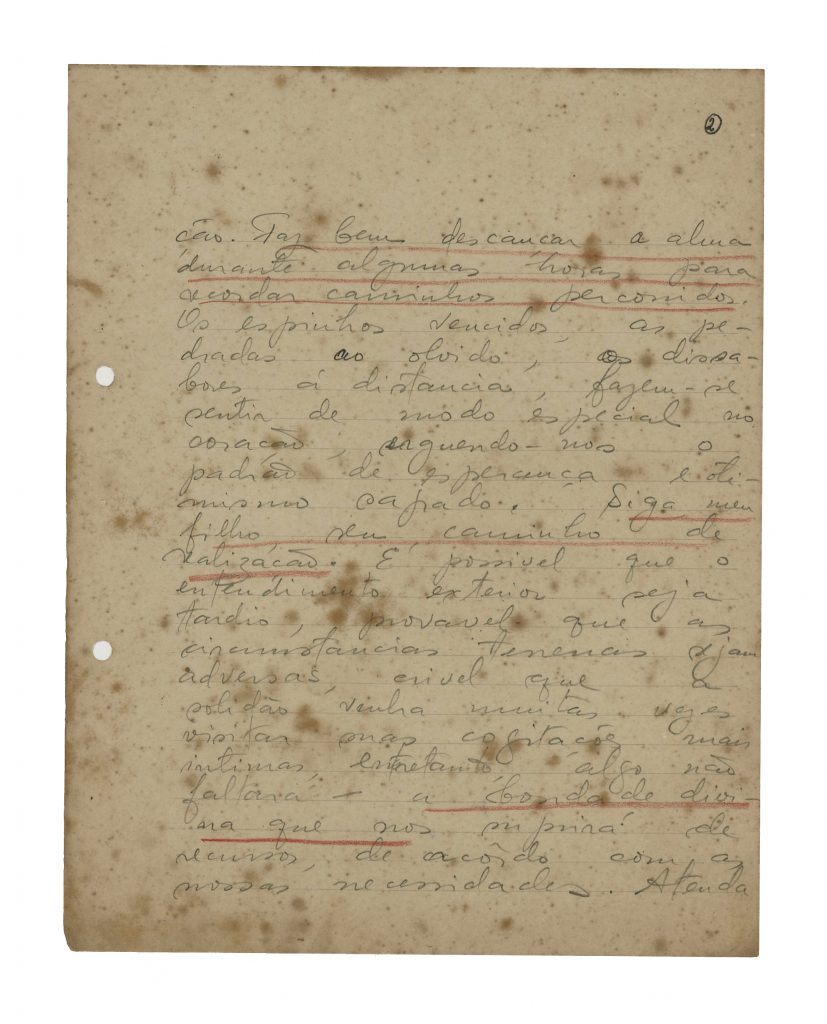 2
ção. Faz bem descançar a alma
durante algumas horas para
recordar caminhos percorridos.
Os espinhos vencidos, as pe-
dradas ao olvido, os dissa-
bores á distancia, fazem-se
sentir de modo especial no
coração, erguendo-nos o
padrão de esperança e oti-
mismo sagrado. Siga, meu
filho, seu caminho de
realização. É possivel que o
entendimento exterior seja
tardio, provavel que as
circunstancias terrenas sejam
adversas, crivel que a
solidão venha muitas vezes
visitar suas cogitações mais
intimas, entretanto algo não
faltará - a Bondade divi-
na que nos suprirá de
recursos, de acôrdo com as
nossas necessidades. Atenda